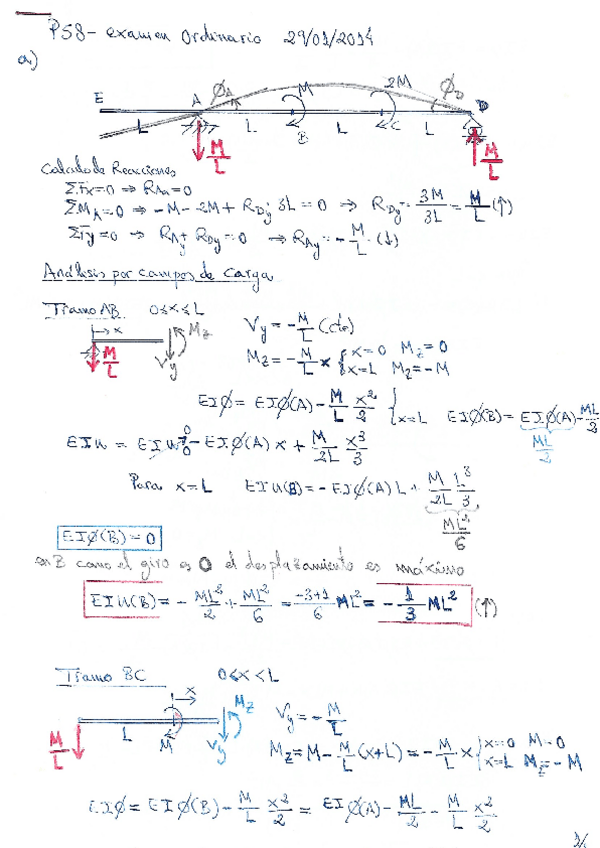 P58- examen Ordinario 29/01/2014
a)
E A ϕA M B 2M C ϕD D
L L L L
M/L M/L
Calculo de Reacciones
ΣFx=0 ⇒ RAx=0
ΣMA=0 ⇒ -M-2M+RDy·3L=0 ⇒ RDy=3M/3L=M/L(↑)
ΣFy=0 ⇒ RAy+RDy=0 ⇒ RAy=-M/L(↓)
Análisis por campos de carga
Tramo AB 0≤x≤L
x M/L Vy Mz
Vy=-M/L(cte)
Mz=-M/L x { x=0 Mz=0
x=L Mz=-M
EIϕ=EIϕ(A)-M/L x²/2 { x=L EIϕ(B)=EIϕ(A)-ML/2
ML/2
EIu=EIu₀-EIϕ(A)x+M/2L x³/3
0
Para x=L EIu(B)=-EIϕ(A)L+M/2L L³/3
ML²/6
EIϕ(B)=0
en B como el giro es 0 el desplazamiento es máximo
EIu(B)=-ML²/2+ML²/6=-3+1/6 ML²=-1/3 ML² (↑)
Tramo BC 0≤x<L
M/L L M x Vy Mz
Vy=-M/L
Mz=M-M/L(x+L)=-M/L x { x=0 M=0
x=L Mz=-M
EIϕ=EIϕ(B)-M/L x²/2=EIϕ(A)-ML/2-M/L x²/2